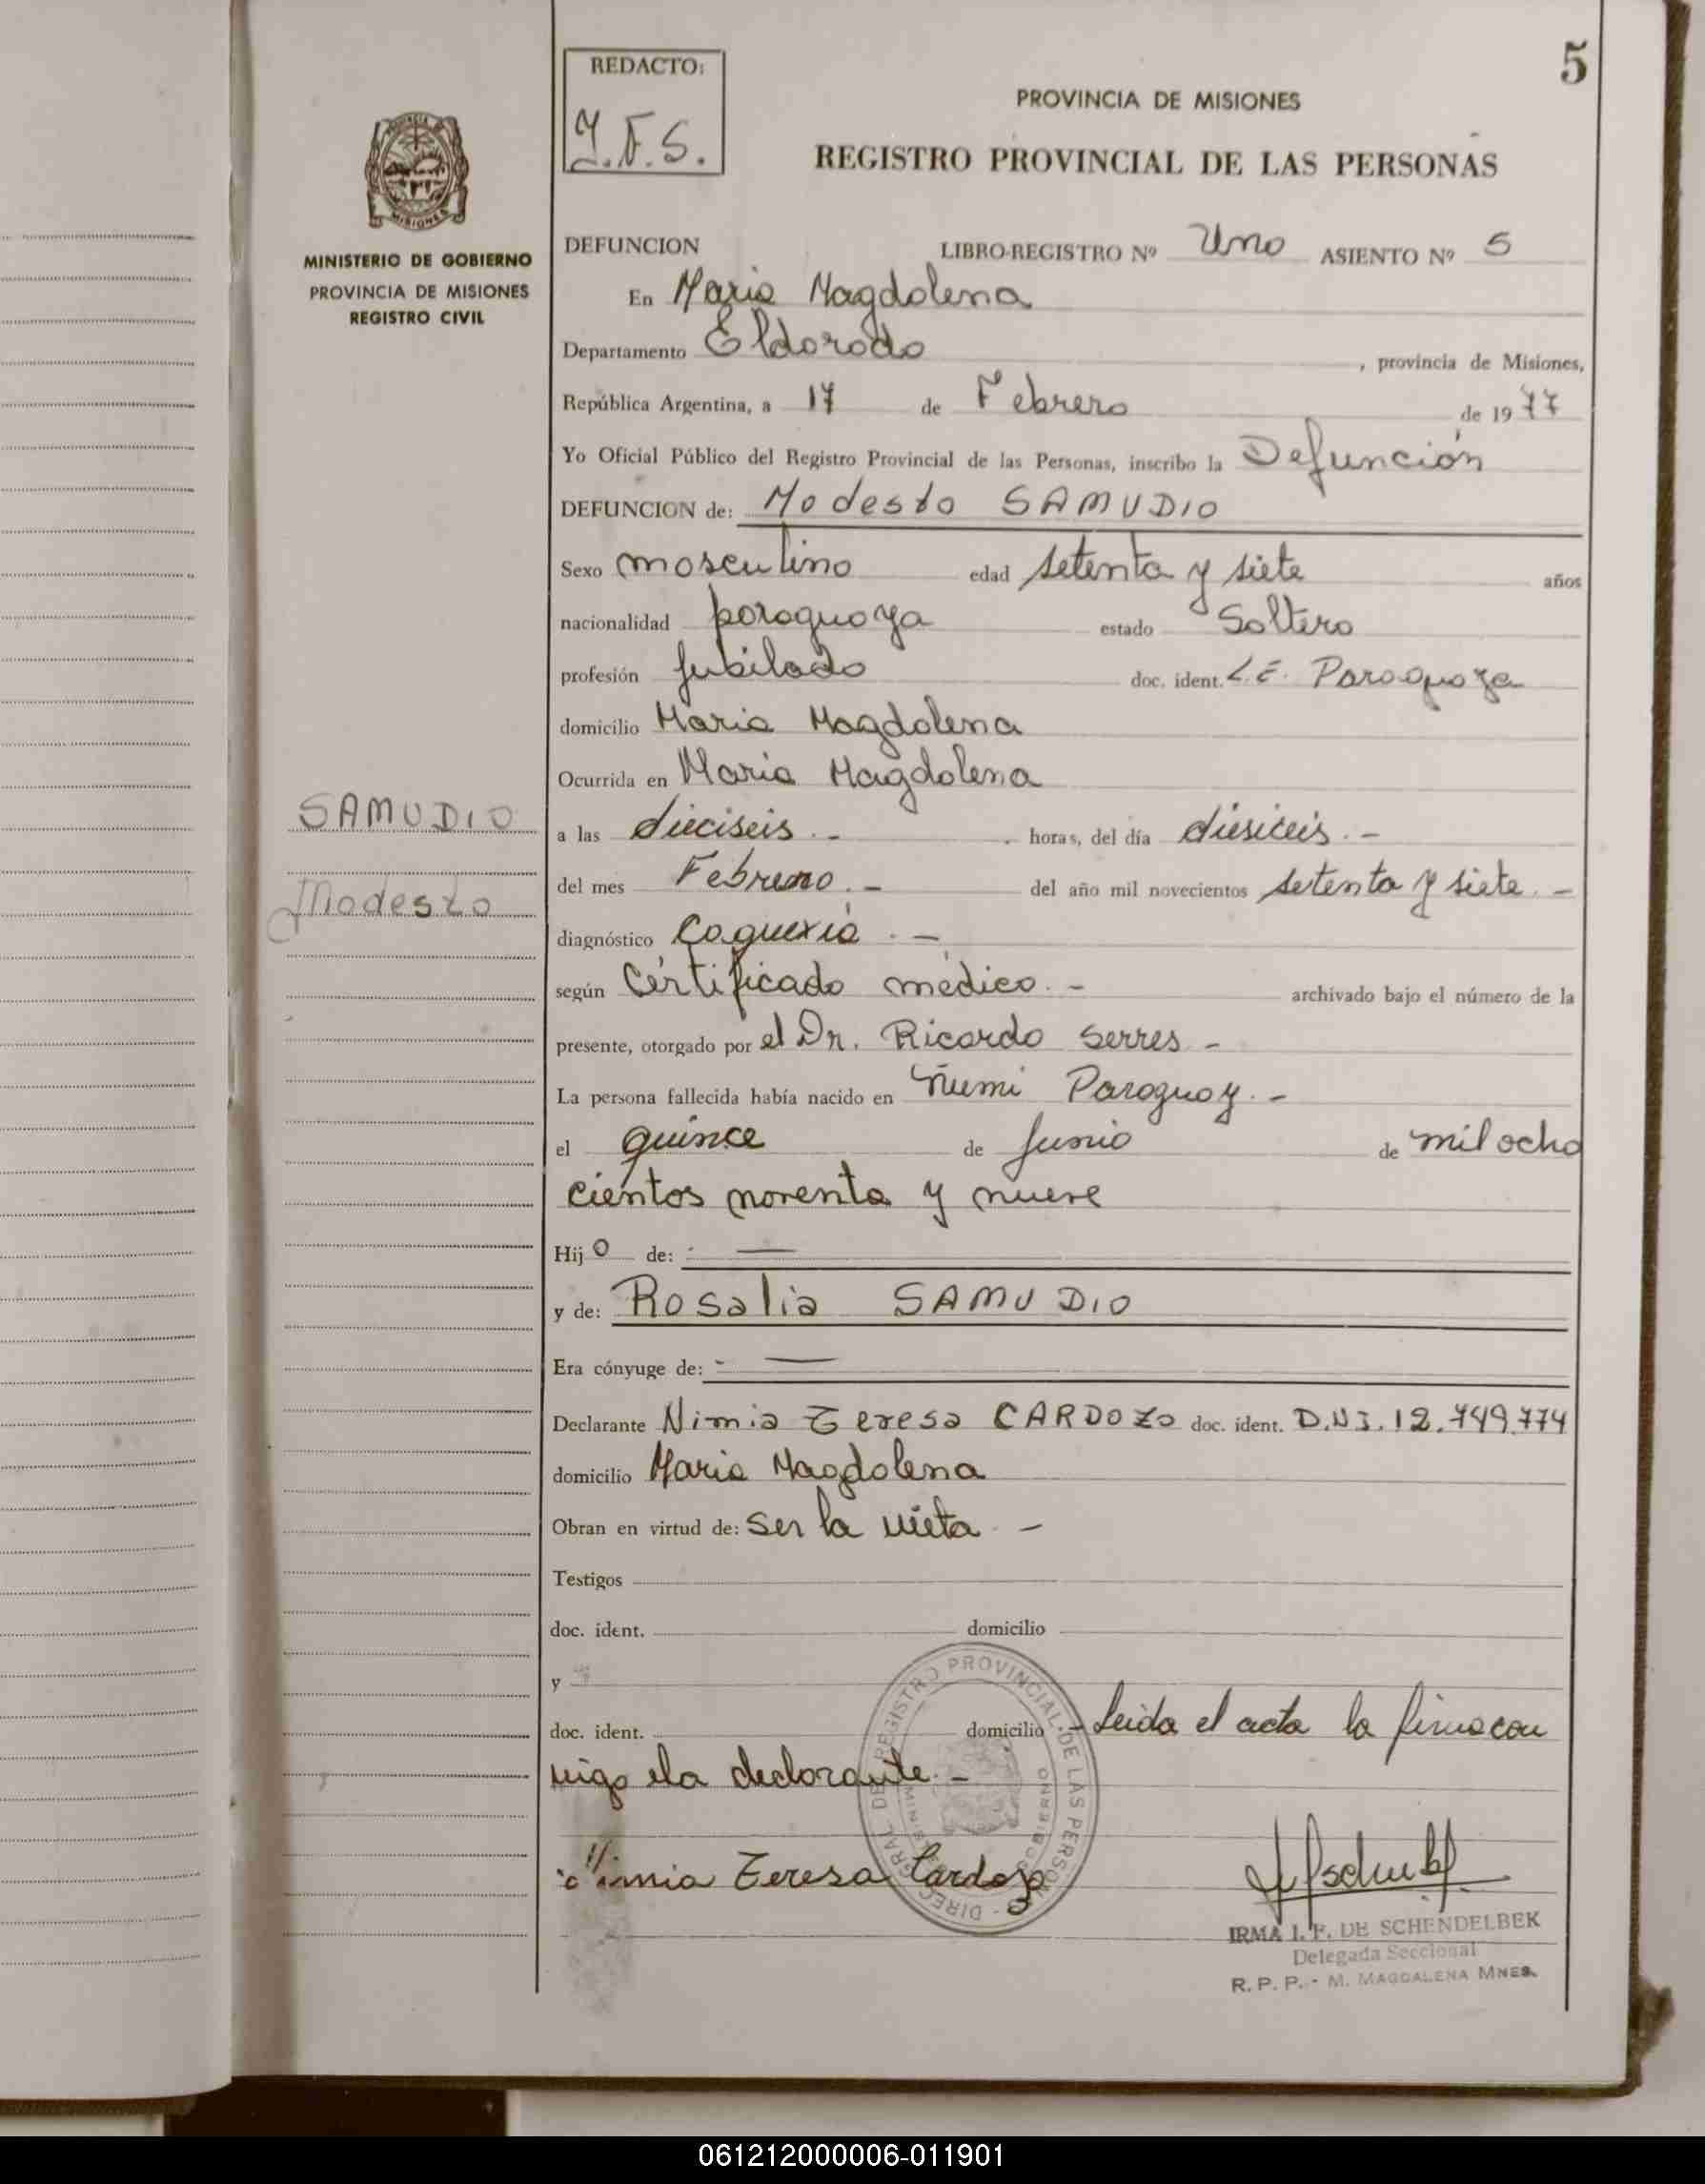 5
REDACTO:
I.F.S.
PROVINCIA DE MISIONES
REGISTRO PROVINCIAL DE LAS PERSONAS
MINISTERIO DE GOBIERNO
PROVINCIA DE MISIONES
REGISTRO CIVIL
DEFUNCION LIBRO-REGISTRO Nº Uno ASIENTO Nº 5
En Maria Magdalena
Departamento Eldorado, provincia de Misiones,
República Argentina, a 17 de Febrero de 1977
Yo Oficial Público del Registro Provincial de las Personas, inscribo la Defunción
DEFUNCION de: Modesto SAMUDIO
Sexo masculino edad setenta y siete años
nacionalidad paraguaya estado Soltero
profesión Jubilado doc. ident. L.E. Paraguaya
domicilio Maria Magdalena
Ocurrida en Maria Magdalena
SAMUDIO
Modesto
a las dieciseis.- horas, del día diesiceis.-
del mes Febrero.- del año mil novecientos setenta y siete.-
diagnóstico Caquexia.-
según Certificado médico.- archivado bajo el número de la
presente, otorgado por el Dr. Ricardo Serres-
La persona fallecida había nacido en Ñumi Paraguay.-
el quince de Junio de mil ocho
cientos noventa y nueve
Hijo de: -
y de: Rosalia SAMUDIO
Era cónyuge de: -
Declarante Nimia Teresa CARDOZO doc. ident. D.N.I. 12.749.774
domicilio Maria Magdalena
Obran en virtud de: Ser la nieta -
Testigos
doc. ident. domicilio
y
doc. ident. domicilio - Leida el acta la firma con
migo la declarante.-
DIREC. GRAL. DE REGISTRO PROVINCIAL DE LAS PERSONAS
Nimia Teresa Cardozo
IRMA I. F. DE SCHENDELBEK
Delegada Seccional
R. P. P. - M. MAGDALENA MNES.
061212000006-011901